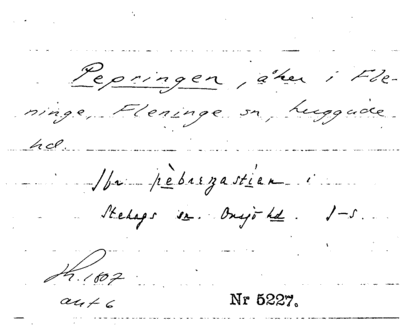 Pepringen, åker i Fle-
ninge, Fleninge sn, Luggude
hd.
Jfr pèbrengastíen i
Stehags sn. Onsjö hd. J-s.
Jh. 1807
akt 6
Nr 5227.